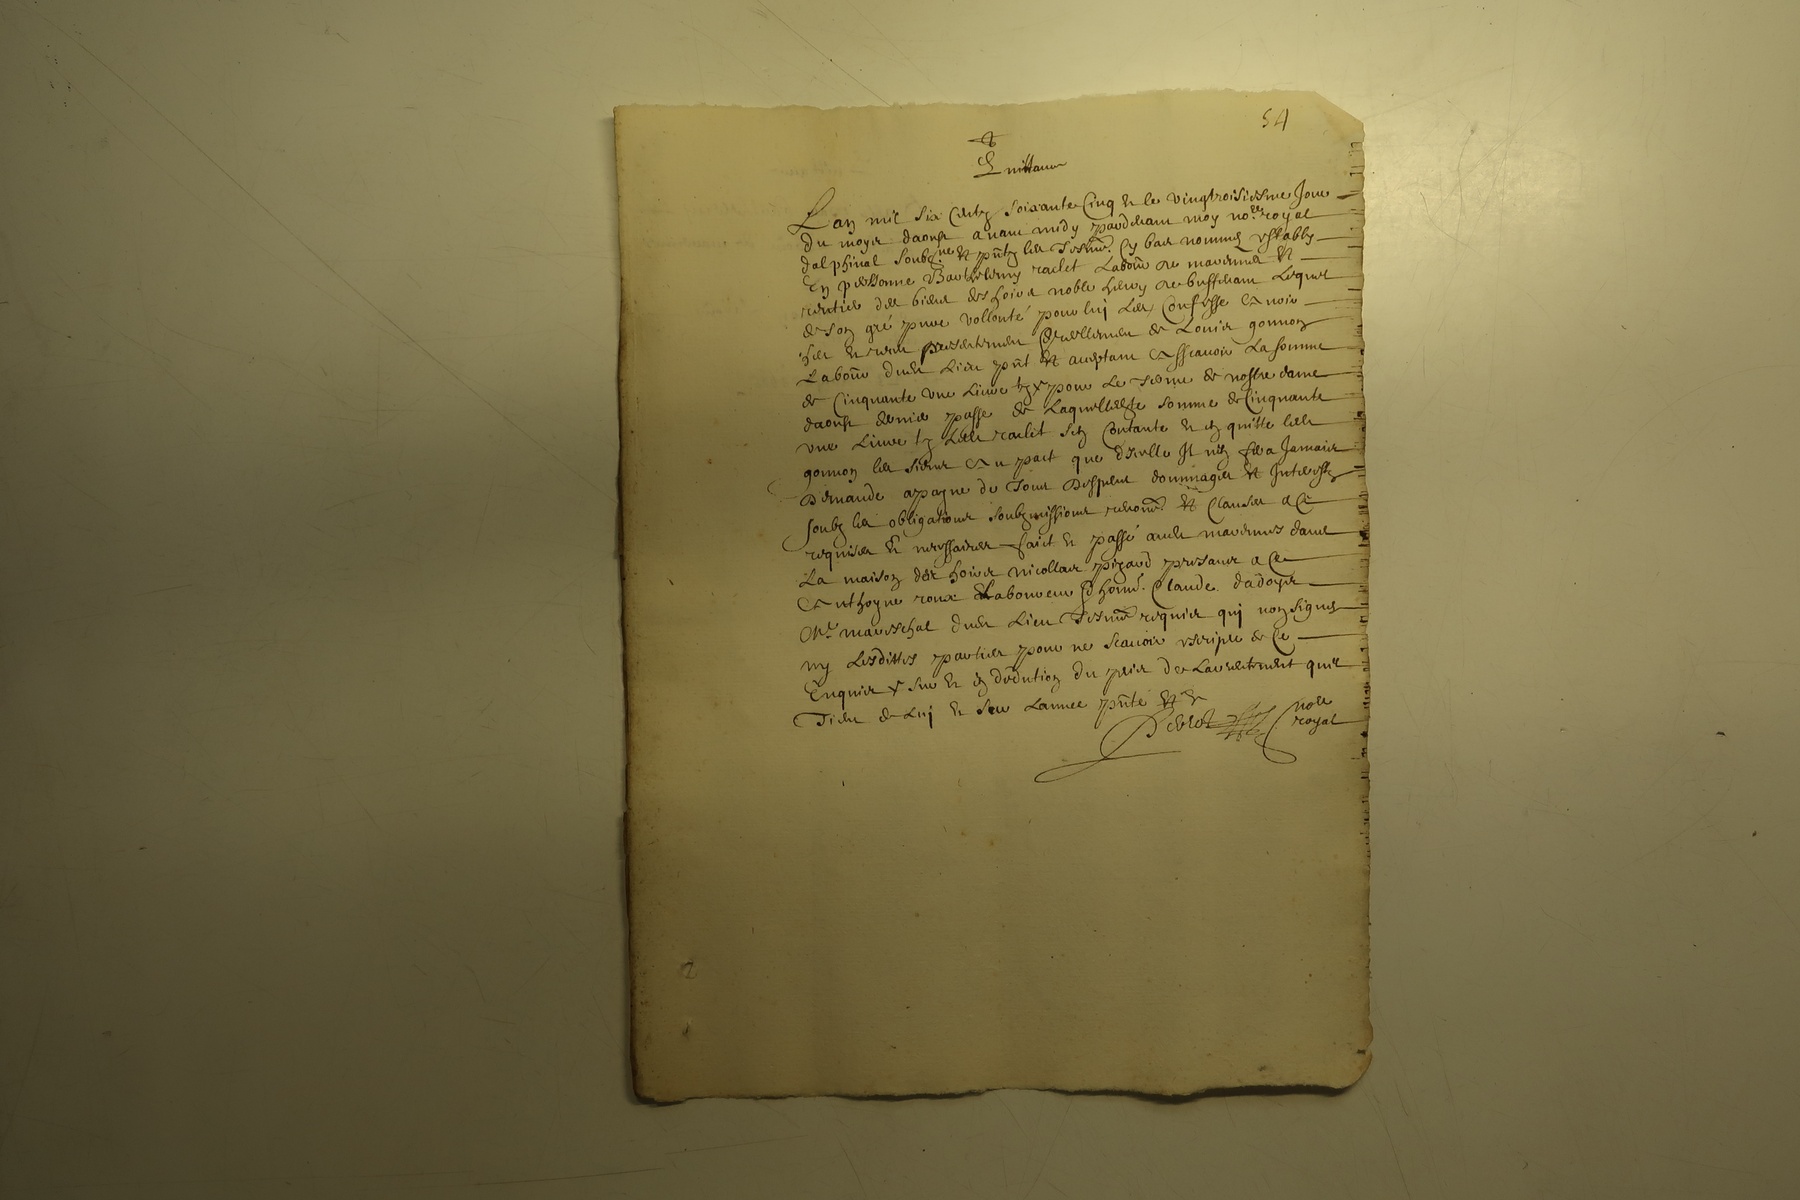 54
Quittance
Lan mil six centz soixante cinq et le vingtroisiesme Jour
du moys daoust avant midy pardevant moy no.re royal
dalphinal soubz.ne et pntz les tesm. cy bas nommez estably
en personne Barthelemy raclet labour de marennes et
rentier des biens des hoirs noble henry de buffevant lequel
de son gré pure vollonté pour luj les Confesse avoir
heu et receu presentement reellement de Louis gonnon
Labour dudt Lieu pnt et aceptant assavoir La somme
de Cinquante une Livre tz pour le terme de nostre dame
daoust dernier passe de Laquelledte somme de Cinquante
une Livre tz Ledt raclet sen Contante et en quitte ledt
gonnon les siens au pact que dicelle Il nen sera Jamais
demande a payne de tous despens dommages et Interestz
soubz les obligations soubzmissions renon. et Clauses a ce
requises et necessaires faict et passé audt marennes dans
La maison des hoirs nicollas pigaud presans a ce
Anthoyne roux Laboureur et honn. Claude dadoyn
M. mareschal dudt Lieu tesm. requis quj non signes
ny Lesdittes parties pour ne scavoir escripre de ce
Enquis sur et en dedution du pris de Larrentement quil
tient de Luj et sur Lannee pnte et
no.re
royal